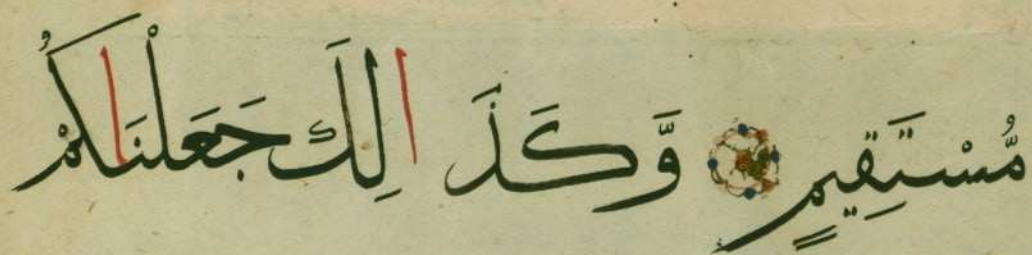 مُّسْتَقِيمٍ وَّكَذَالِكَ جَعَلْنَاكُمْ